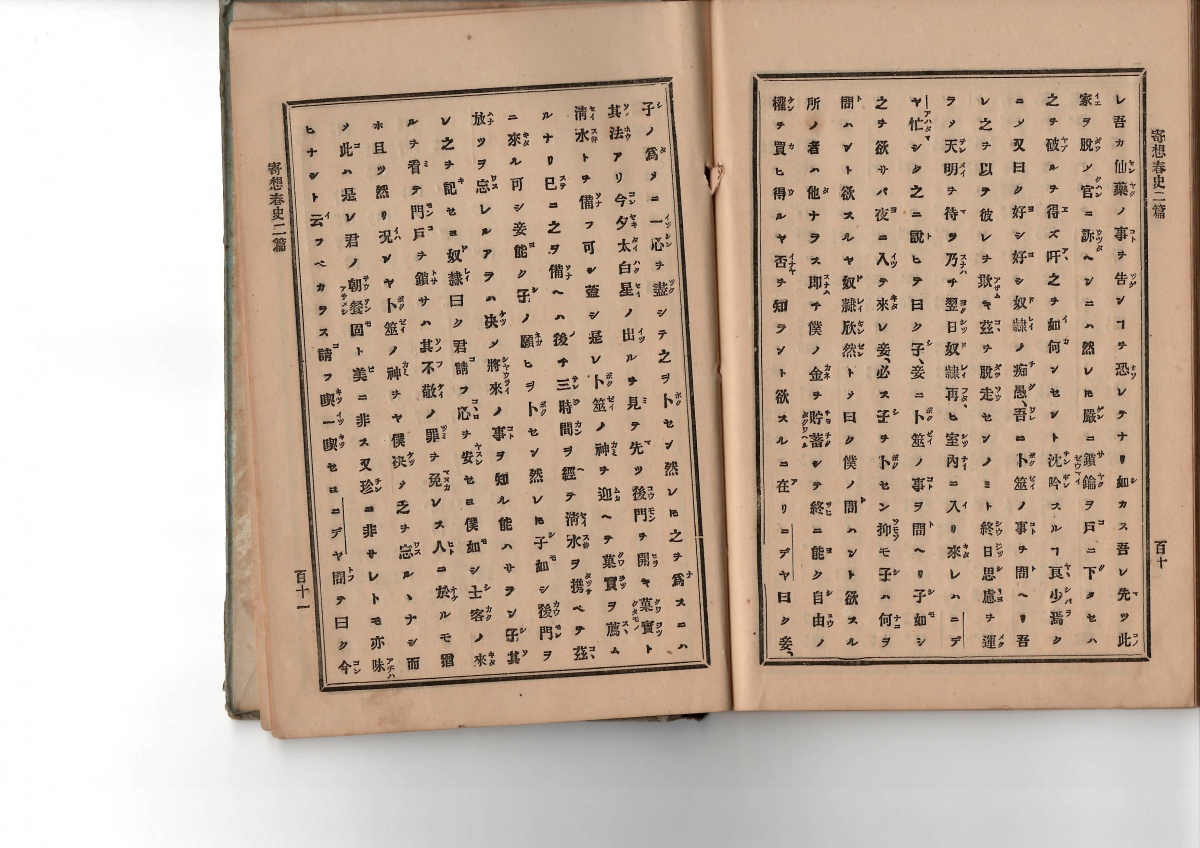 寄想春史二篇
百十
レ吾カ仙藥ノ事ヲ告ンヿヲ恐レテナリ如カス吾レ先ツ此
家ヲ脱シ官ニ訴ヘンニハ然レ𪜈嚴ニ鎖鑰ヲ戸ニ下タセハ
之ヲ破ルヲ得ズ吁之ヲ如何ンセント沈吟スルヿ良少焉ク
ニシ又曰ク好シ好シ奴隷ノ痴愚、吾ニ卜筮ノ事ヲ問ヘリ吾
レ之ヲ以テ彼レヲ欺キ茲ヲ脱走センノミト終日思慮ヲ運
ラシ天明ヲ待ツ乃チ翌日奴隷再ヒ室內ニ入リ來レハニデ
ヤ忙シク之ニ說ヒテ曰ク子、妾ニ卜筮ノ事ヲ問ヘリ子如シ
之ヲ欲サバ夜ニ入テ來レ妾、必ス子ヲ卜セン抑モ子ハ何ヲ
問ハント欲スルヤ奴隷欣然トシ曰ク僕ノ問ハント欲スル
所ノ者ハ他ナラス即チ僕ノ金ヲ貯蓄シテ終ニ能ク自由ノ
權ヲ買ヒ得ルヤ否ヲ知ラント欲スルニ在リニデヤ曰ク妾、
子ノ爲メニ一心ヲ盡シテ之ヲ卜セン然レ𪜈之ヲ爲スニハ
其法アリ今夕太白星ノ出ルヲ見テ先ツ後門ヲ開キ菓實ト
淸水トヲ備フ可シ蓋シ是レ卜筮ノ神ヲ迎ヘテ菓實ヲ薦ム
ルナリ已ニ之ヲ備ヘハ後チ三時間ヲ經テ淸水ヲ携ベテ茲
ニ來ル可シ妾能ク子ノ願ヒヲ卜セン然レ𪜈子如シ後門ヲ
放ツヲ忘レルアラハ决メ將來ノ事ヲ知ル能ハサラン子其
レ之ヲ記セヨ奴隷曰ク君請フ心ヲ安セヨ僕如シ士客ノ來
ルヲ看テ門戸ヲ鎖サハ其不敬ノ罪ヲ免レス人ニ於ルモ猶
ホ且ツ然リ况ンヤ卜筮ノ神ヲヤ僕决シ之ヲ忘ルヽナシ而
シ此ハ是レ君ノ朝餐固ト美ニ非ス又珍ニ非サレトモ亦味
ヒナシト云フベカラス請フ喫一喫セヨニデヤ問テ曰ク今
寄想春史二篇
百十一